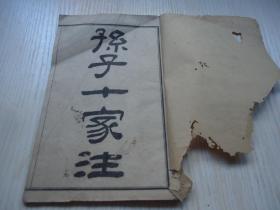 孫子十家注